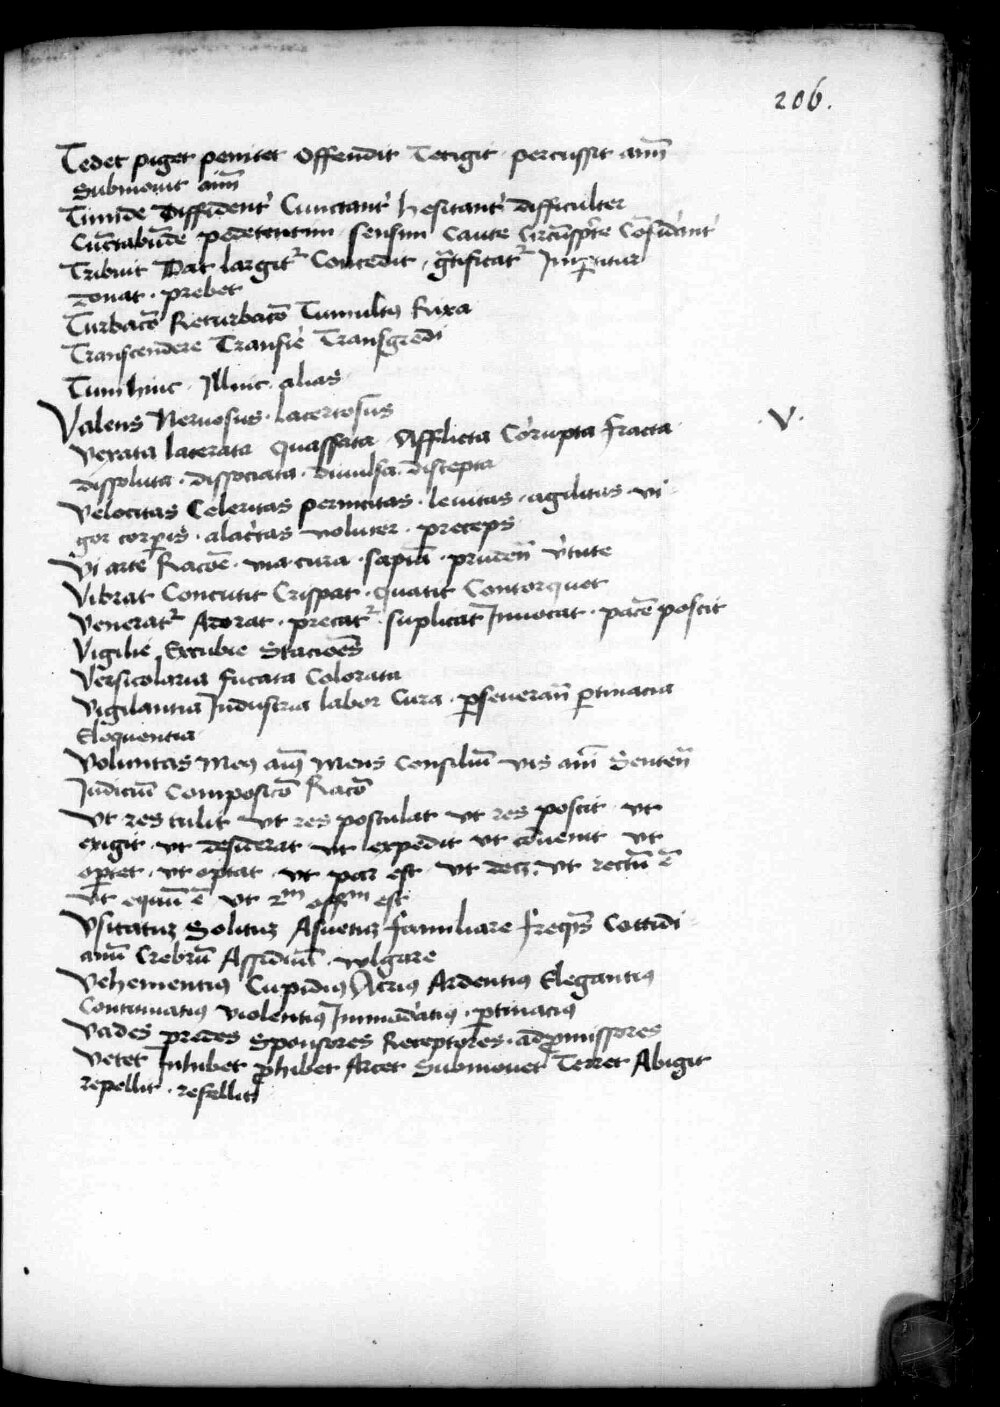 206.
Tedet piget penitet Offendit Tetigit percussit aim̄
Submouit aim̄
Timide Diffident᷑ Cunctant᷑ hesitant᷑ difficulter
Cūctabūde pedetentim sensim caute circūspc̄te Cōsid᷑ant᷑
Tribuit Dat largit᷑ Concedit, g̃tificat᷑ Imp̱titur
Donat . prebet
Turbacō Returbacō Tumultꝰ Rixa
Transcendere Transir̄e Transgredi
Tum hinc . Illinc . alias
Valens Neruosus . lacertosus
.V.
Vexata lacerata Quassata Afflicta Cor᷑upta fracta
dissoluta . dissociata . diuulsa . discepta
Velocitas Celeritas pernicitas . leuitas . agilitas . vi
gor corp̱is . alac᷑tas voluter . preceps
Vi arte Racōe . via cura . sapiā . prudēn v᷑tute
Vibrat Concutit Crispat . Quatit Contorquet
Venerat᷑ Adorat . precat᷑ . suplicat Inuocat . pacē poscit
Vigilie Excubie Stacioēs
Versicolaria fucata Colorata
Vigilantia Industria labor Cura . p̱seuerañ p̱tinacia
Eloquentia
Voluntas Meꝰ aiꝰ Mens Consiliū vis aim̄ Senteñ
Iudiciū Composicō Racō
Vt res tulit vt res postulat vt res poscit . vt
exigit . vt desiderat vt expedit vt cōuenit vt
op̱tet . vt optat . vt par est . vt decꝫ . vt rectū ē
vt equū ē vt r̄m offm̄ est
Vsitatuꝫ Solituꝫ Asuetuꝫ familiare freqn̄s Cottidi
anū Crebrū Assiduū . volgare
Vehementiꝰ Cupidiꝰ Acriꝰ Ardentiꝰ Elegantiꝰ
Continuatiꝰ violentiꝰ Immod᷑atiꝰ . p̱tinaciꝰ
Vades predes Sponsores Receptores . adꝓmissores
Vetet Inhibet ꝓhibet Arcet Submouet Terret Abigit
repellit . refellit